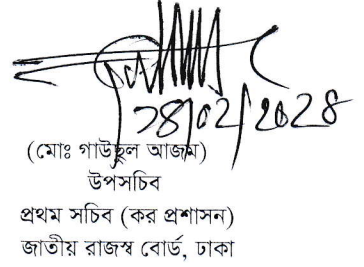 ১৪/০২/২০২৪
(মোঃ গাউছুল আজম)
উপসচিব
প্রথম সচিব (কর প্রশাসন)
জাতীয় রাজস্ব বোর্ড, ঢাকা